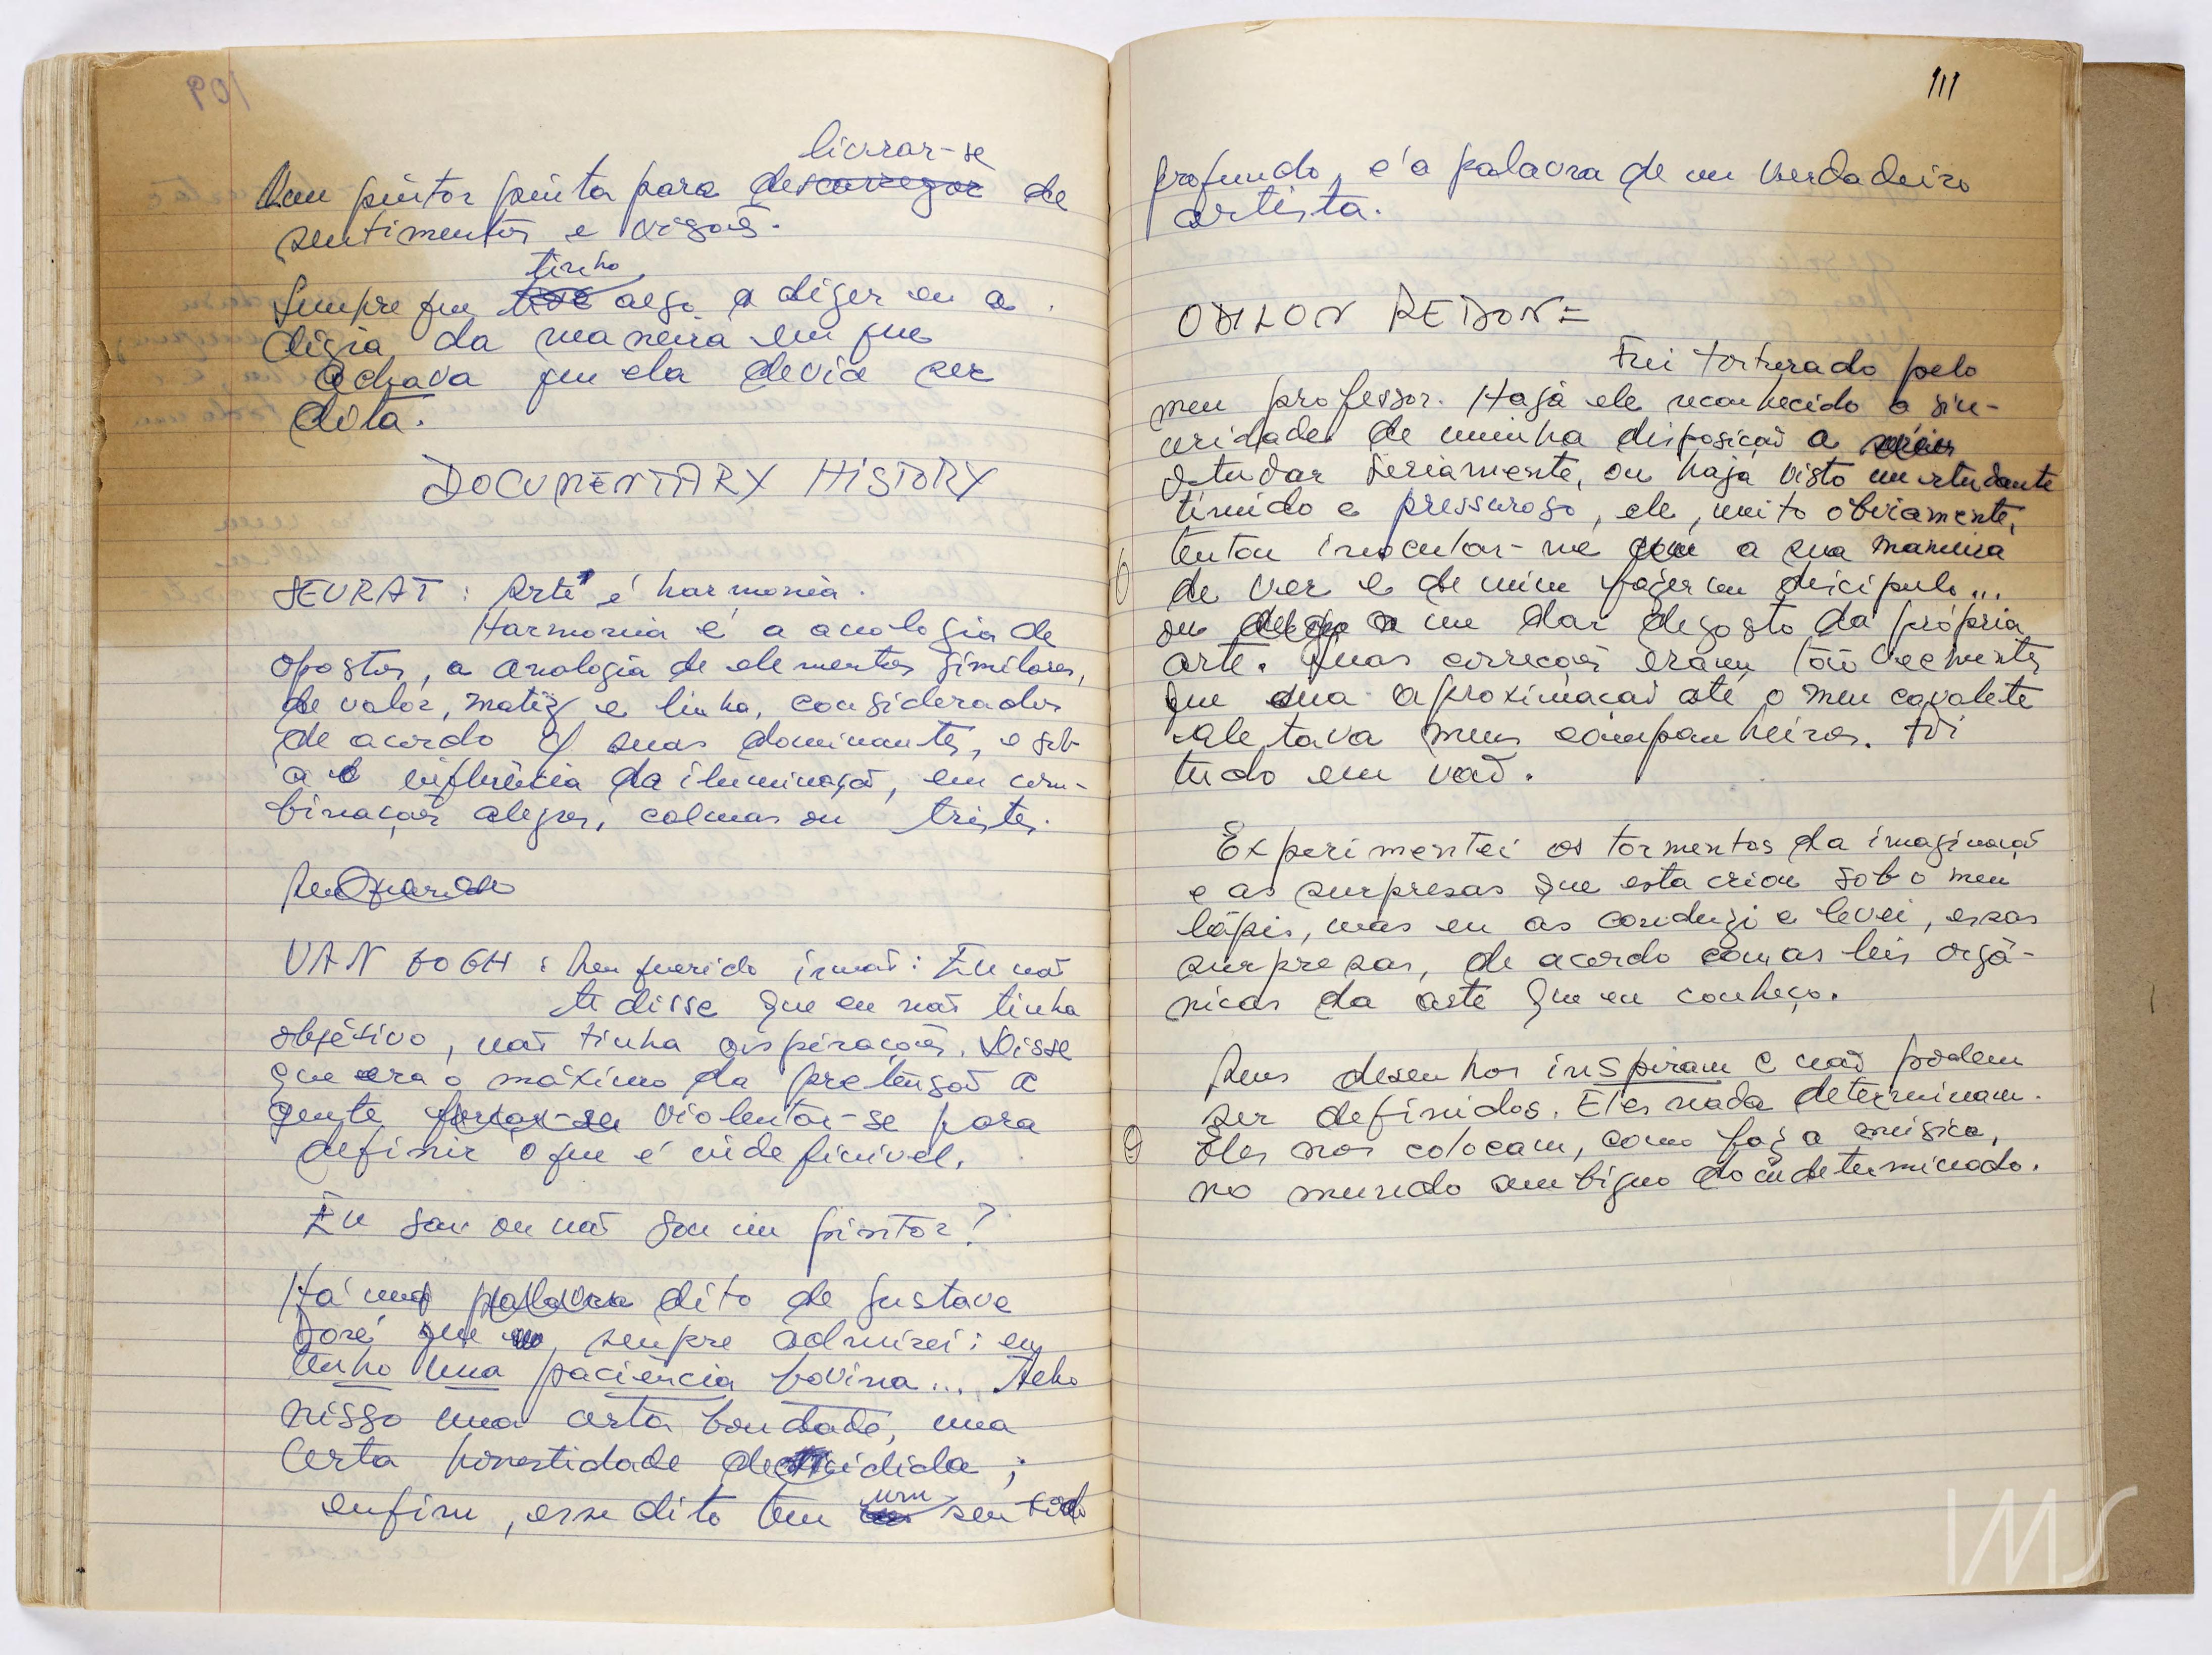 109
livrar-se
Um pintor pinta para descarregar de
sentimentos e visões.
tinha
Sempre que tive algo a dizer eu a
dizia da maneira em que
achava que ela devia ser
dita.
DOCUMENTARY HISTORY
SEURAT : Arte é harmonia.
Harmonia é a analogia de
opostos, a analogia de elementos similares,
de valor, matiz e linha, considerados
de acordo c/ suas dominantes, e sob
a influência da iluminação, em com-
binações alegres, calmas ou tristes.
VAN GOGH : Meu querido irmão : Eu não
te disse que eu não tinha
objetivo, não tinha aspirações. Disse
que era o máximo da pretensão a
gente forçar-se violentar-se para
definir o que é indefinível.
Eu sou ou não sou um pintor?
Há um palavra dito de Gustave
Doré que sempre admirei : eu
tenho uma paciência bovina... Acho
nisso uma certa bondade, uma
certa honestidade decidida ;
um
enfim, esse dito tem sentido
111
profundo, é a palavra de um verdadeiro
artista.
ODILON REDON =
Fui torturado pelo
meu professor. Haja ele reconhecido a sin-
ceridade de minha disposição a
estudar seriamente, ou haja visto um estudante
tímido e pressuroso, ele, muito obviamente,
tentou inocular-me com a sua maneira
de ver e de mim fazer um discipulo...
ou me dar desgosto da própria
arte. Suas correções eram tão veementes
que sua aproximação até o meu cavalete
afetava meus companheiros. Foi
tudo em vão.
Experimentei os tormentos da imaginação
e as surpresas que esta criou sob o meu
lápis, mas eu as conduzi e levei, essas
surpresas, de acordo com as leis orgâ-
nicas da arte que eu conheço.
Meus desenhos inspiram e não podem
ser definidos. Eles nada determinam.
Eles nos colocam, como faz a música,
no mundo ambíguo do indeterminado.
IMS